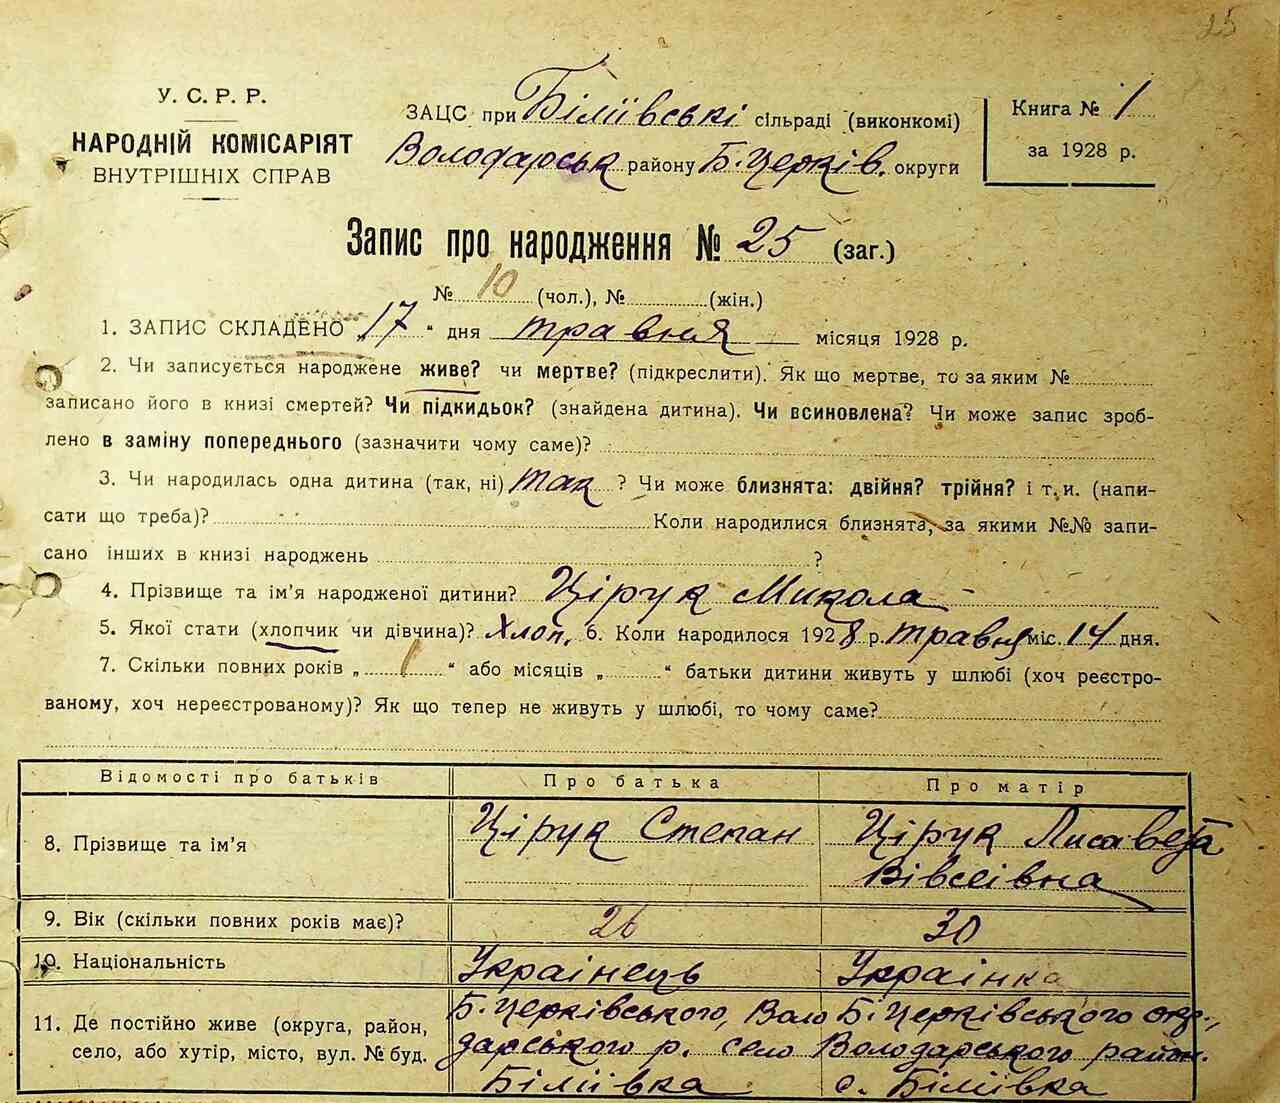 25
У. С. Р. Р.
НАРОДНІЙ КОМІСАРІЯТ
ВНУТРІШНІХ СПРАВ
ЗАЦС при Біліївські сільраді (виконкомі)
Володарськ району Б.Церків. округи
Книга № 1
за 1928 р.
Запис про народження № 25 (заг.)
№ 10 (чол.), № (жін.)
1. ЗАПИС СКЛАДЕНО „17“ дня травня місяця 1928 р.
2. Чи записується народжене живе? чи мертве? (підкреслити). Як що мертве, то за яким №
записано його в книзі смертей? Чи підкидьок? (знайдена дитина). Чи всиновлена? Чи може запис зроб-
лено в заміну попереднього (зазначити чому саме)?
3. Чи народилась одна дитина (так, ні) так ? Чи може близнята: двійня? трійня? і т. и. (напи-
сати що треба)? Коли народилися близнята, за якими №№ запи-
сано інших в книзі народжень ?
4. Прізвище та ім’я народженої дитини? Цірук Микола
5. Якої стати (хлопчик чи дівчина)? Хлоп. 6. Коли народилося 1928 р. травня міс. 14 дня.
7. Скільки повних років „ 1 “ або місяців „ “ батьки дитини живуть у шлюбі (хоч реєстро-
ваному, хоч нереєстрованому)? Як що тепер не живуть у шлюбі, то чому саме?
Відомості про батьків Про батька Про матір
8. Прізвище та ім’я Цірук Степан Цірук Лисавета
Вівсеівна
9. Вік (скільки повних років має)? 26 30
10. Національність Украінець Украінка
11. Де постійно живе (округа, район,
село, або хутір, місто, вул. № буд.
Б.Церківського, Воло
дарського р. село
Біліівка
Б.Церківського окр.,
Володарського район.
с. Біліівка